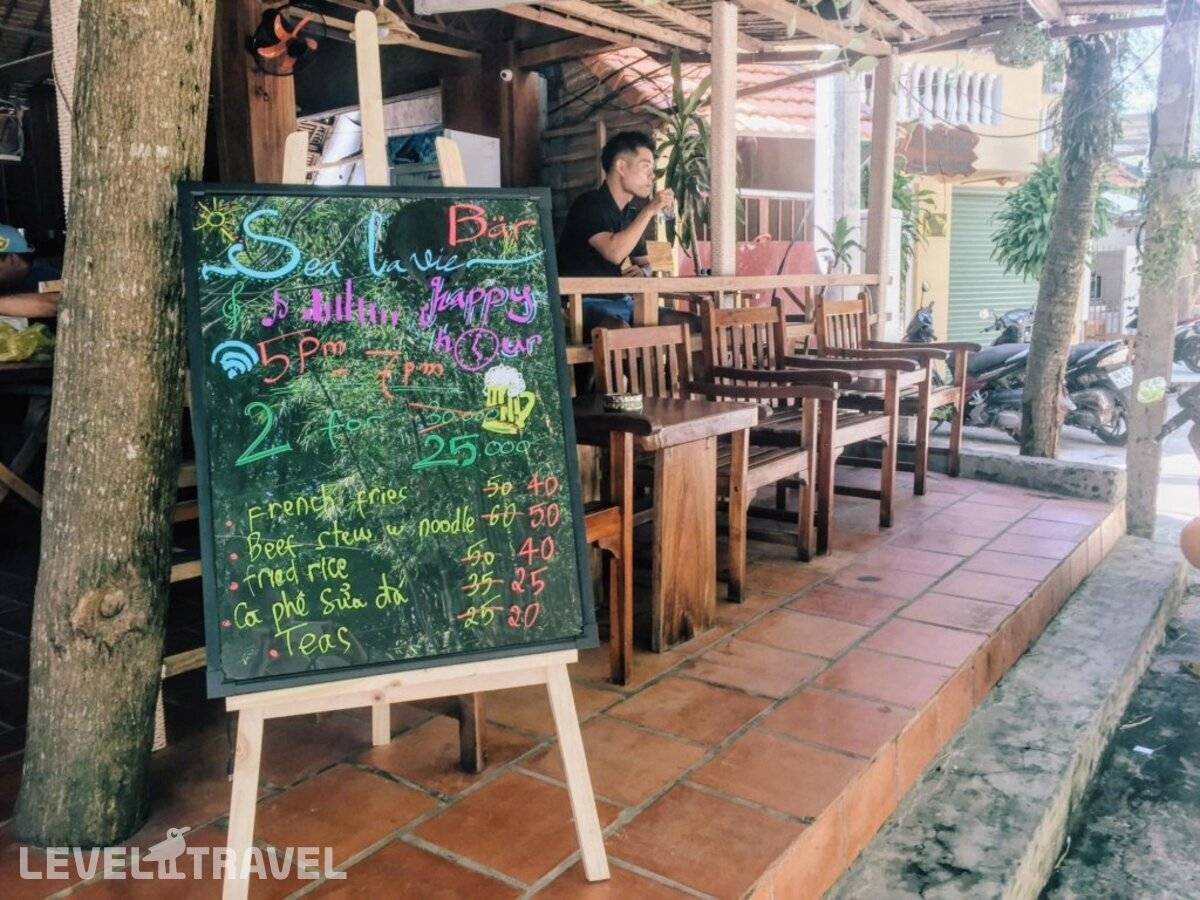 Sea la vie Bär
happy
hour
5pm - 7pm
2 for 25000
French fries 50 40
Beef stew w noodle 60 50
fried rice 50 40
Ca phê Sửa đá 35 25
Teas 25 20
LEVEL TRAVEL